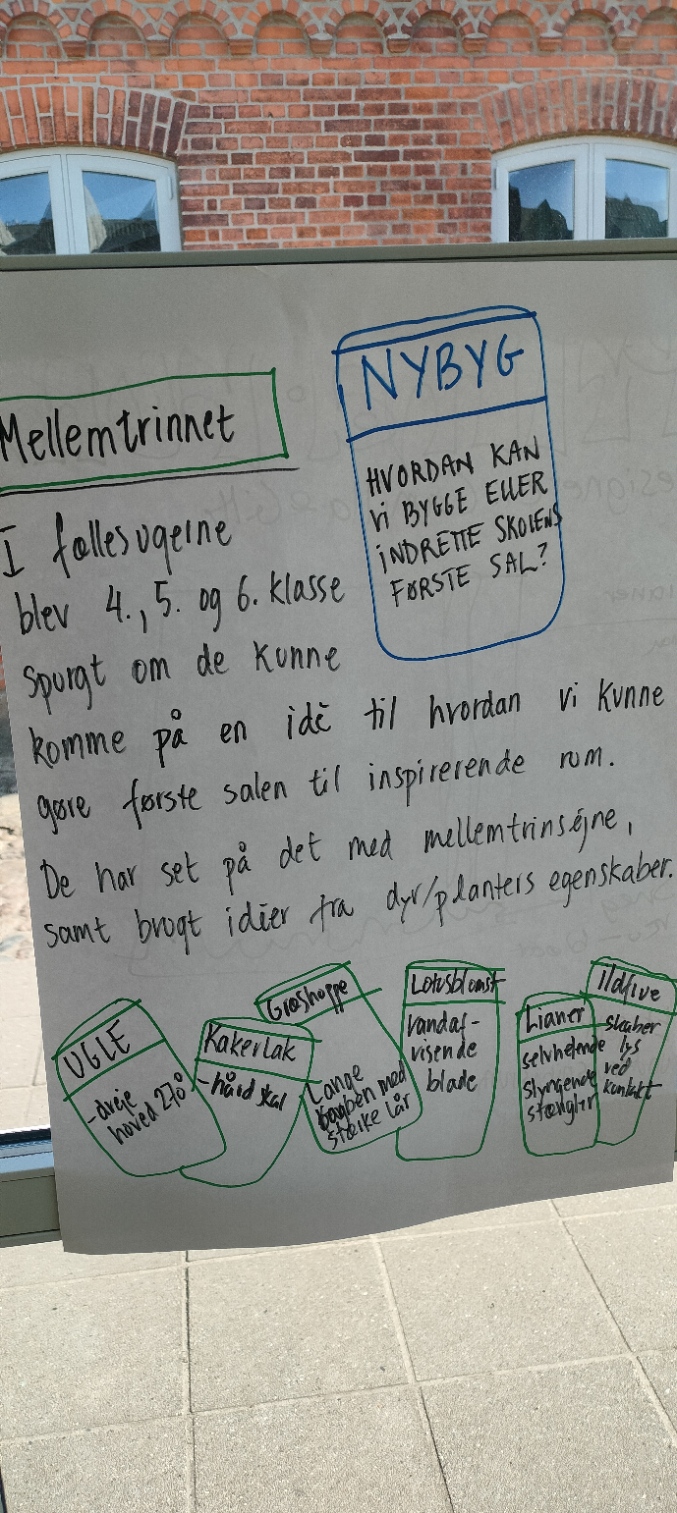 NYBYG
HVORDAN KAN
Vi BYGGE ELLER
iNDRETTE SKOLENS
FØRSTE SAL?
Mellemtrinnet
I fællesugerne
blev 4., 5. og 6. klasse
spurgt om de kunne
komme på en idè til hvordan vi kunne
gøre første salen til inspirerende rum.
De har set på det med mellemtrinsøjne,
samt brugt idéer fra dyr/planters egenskaber.
UGLE
-dreje
hoved 270°
Kakerlak
-hård skal
Græshoppe
Lange
bagben med
stærke lår
Lotusblomst
Vandaf-
visende
blade
Lianer
selvhelende
slyngende
stængler
ildflue
skaber
lys
ved
kontakt